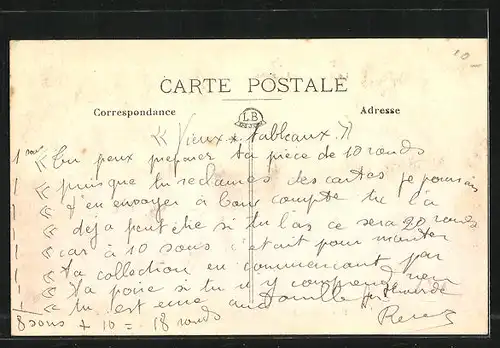 10 -
CARTE POSTALE
Correspondance
LB
Adresse
« Vieux tableaux »
1 « Tu peux preparer ta pièce de 10 ronds
1 « puisque tu reclames des cartas je pouvais
1 « t'en envoyer à bon compte tu l'a
1 « deja peut etre si tu l'as ce sera 20 ronds
1 « car à 10 sous c'était pour monter
1 « ta collection en commencant par
1 « ta poire si tu n'y comprend rien
1 « tu est une andouille
8 sous + 10 = 18 ronds